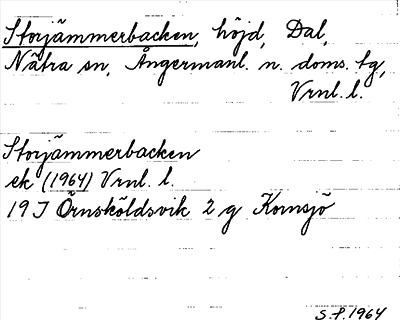 Storjämmerbacken, höjd, Dal,
Nätra sn, Ångermanl. n. doms. tg,
Vrnl. l.
Storjämmerbacken
ek (1964) Vrnl. l.
19 J Örnsköldsvik 2 g Kornsjö
S.P. 1964